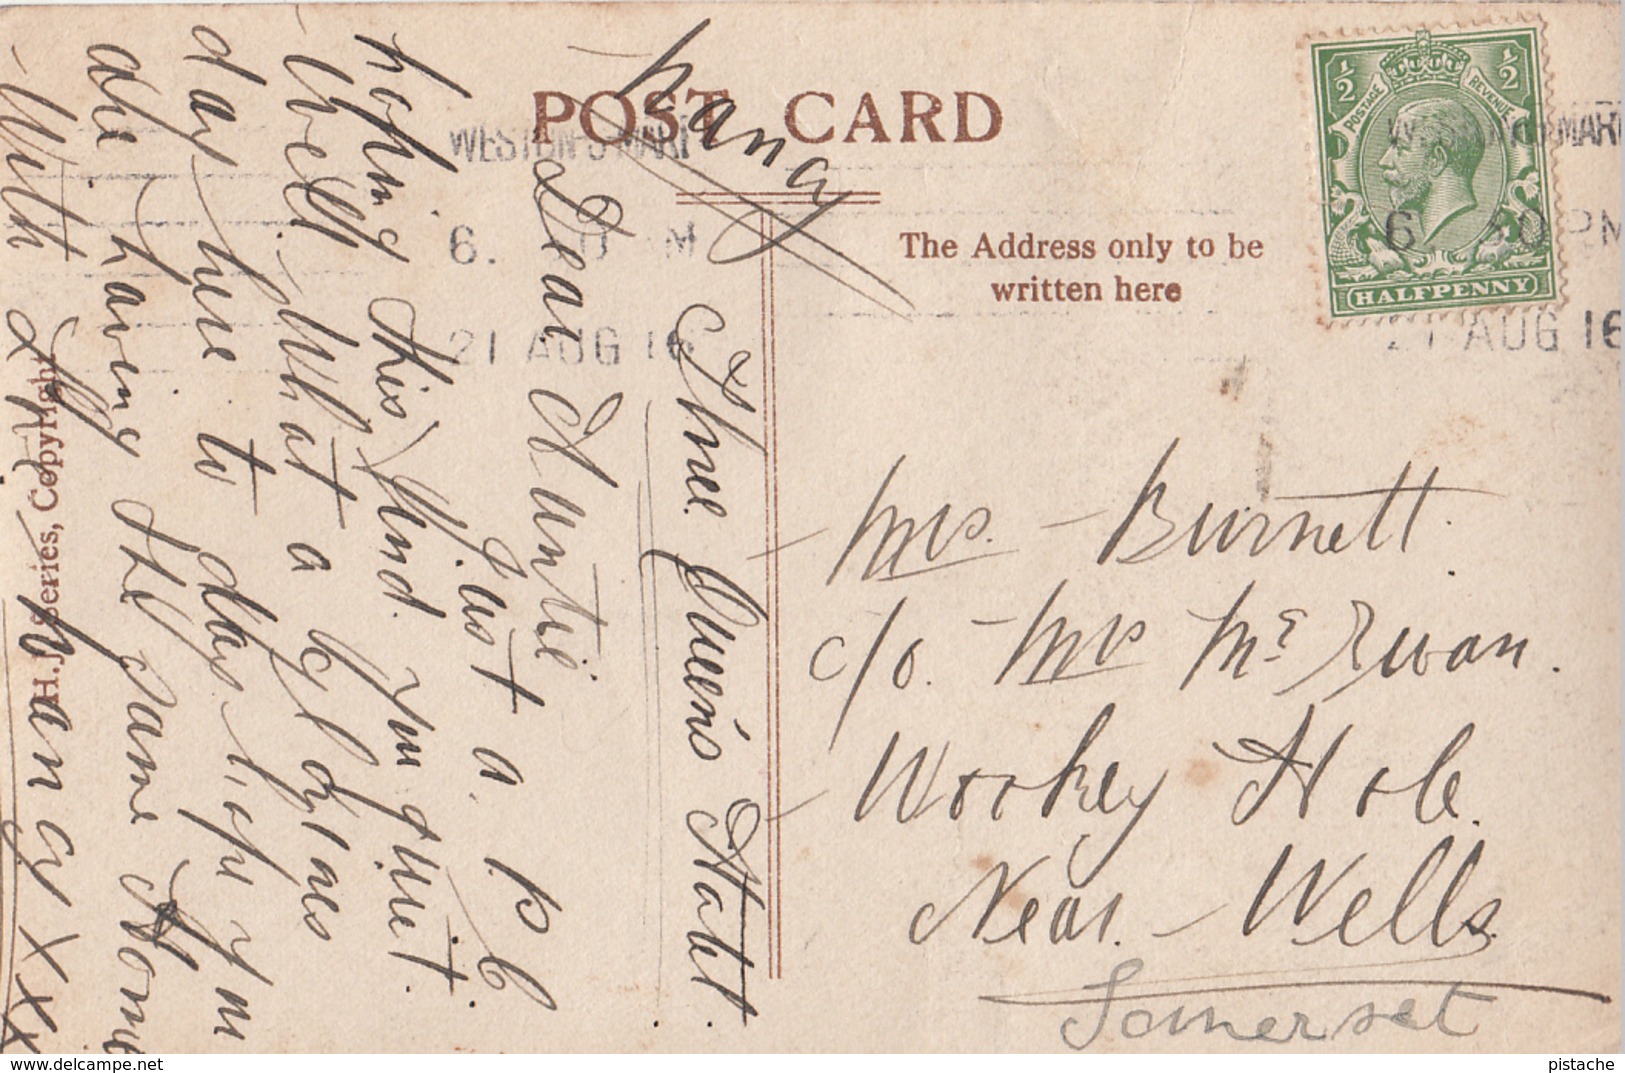 POST CARD
The Address only to be
written here
½ ½
POSTAGE REVENUE
HALFPENNY
WESTON-S-MARE
6. 0 PM
21 AUG 16
WESTON-S-MARE
6. 30 PM
21 AUG 16
H.J. Series, Copyright
Mrs. Burnett.
c/o. Mrs McEwan.
Wookey Hole.
Near. Wells
Somerset
Three Queen's Hotel.
Dear Auntie
Just a. p c
hoping this find. you quit.
well. What a
day here to day. hope you
are having the same Home
With
Nancy XXX
Nancy
pistache
Delcampe.net